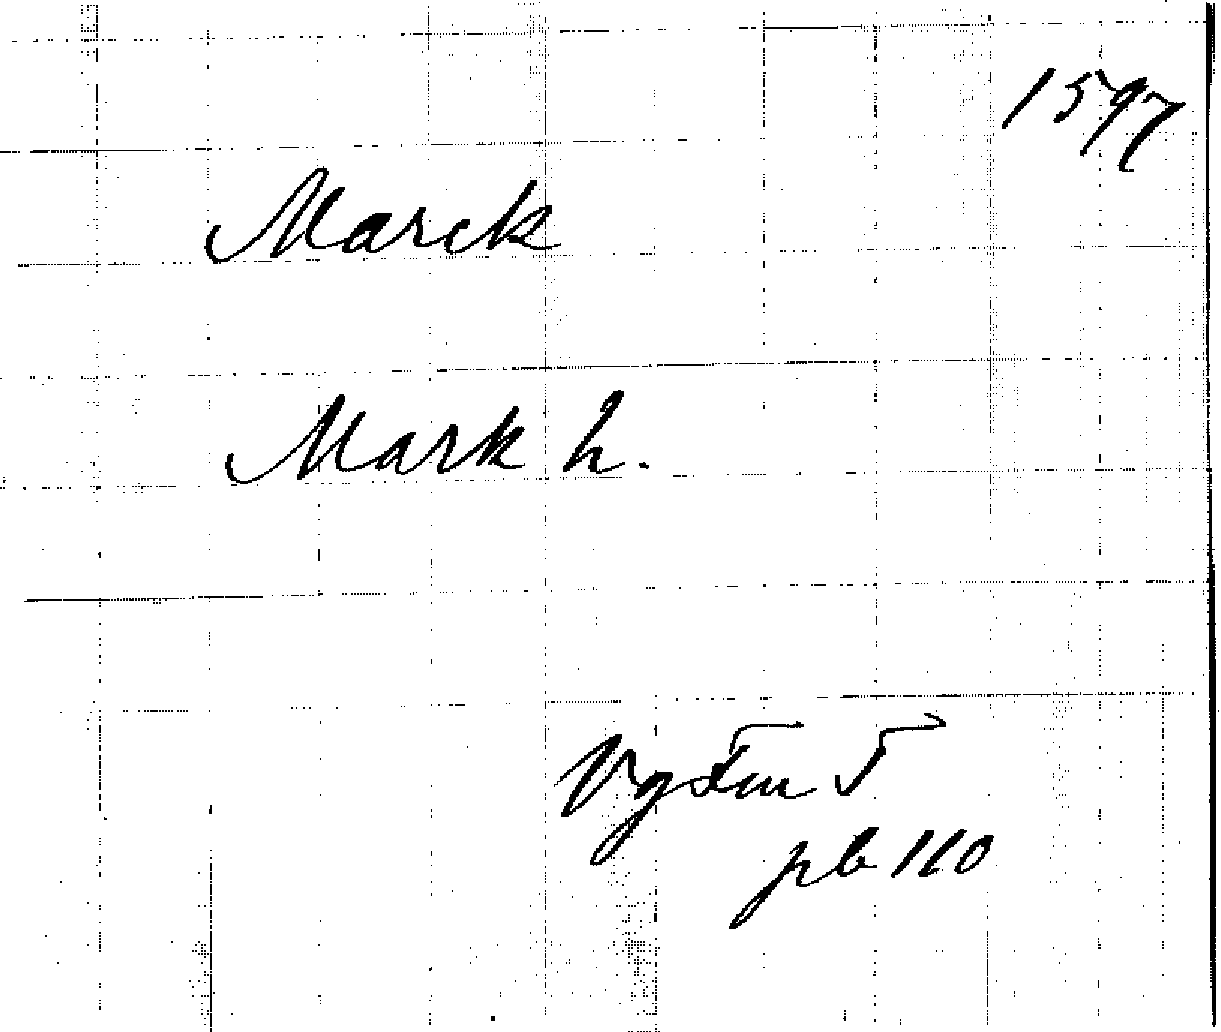 1597
Marck
Mark h.
VgFm 5
pb 110